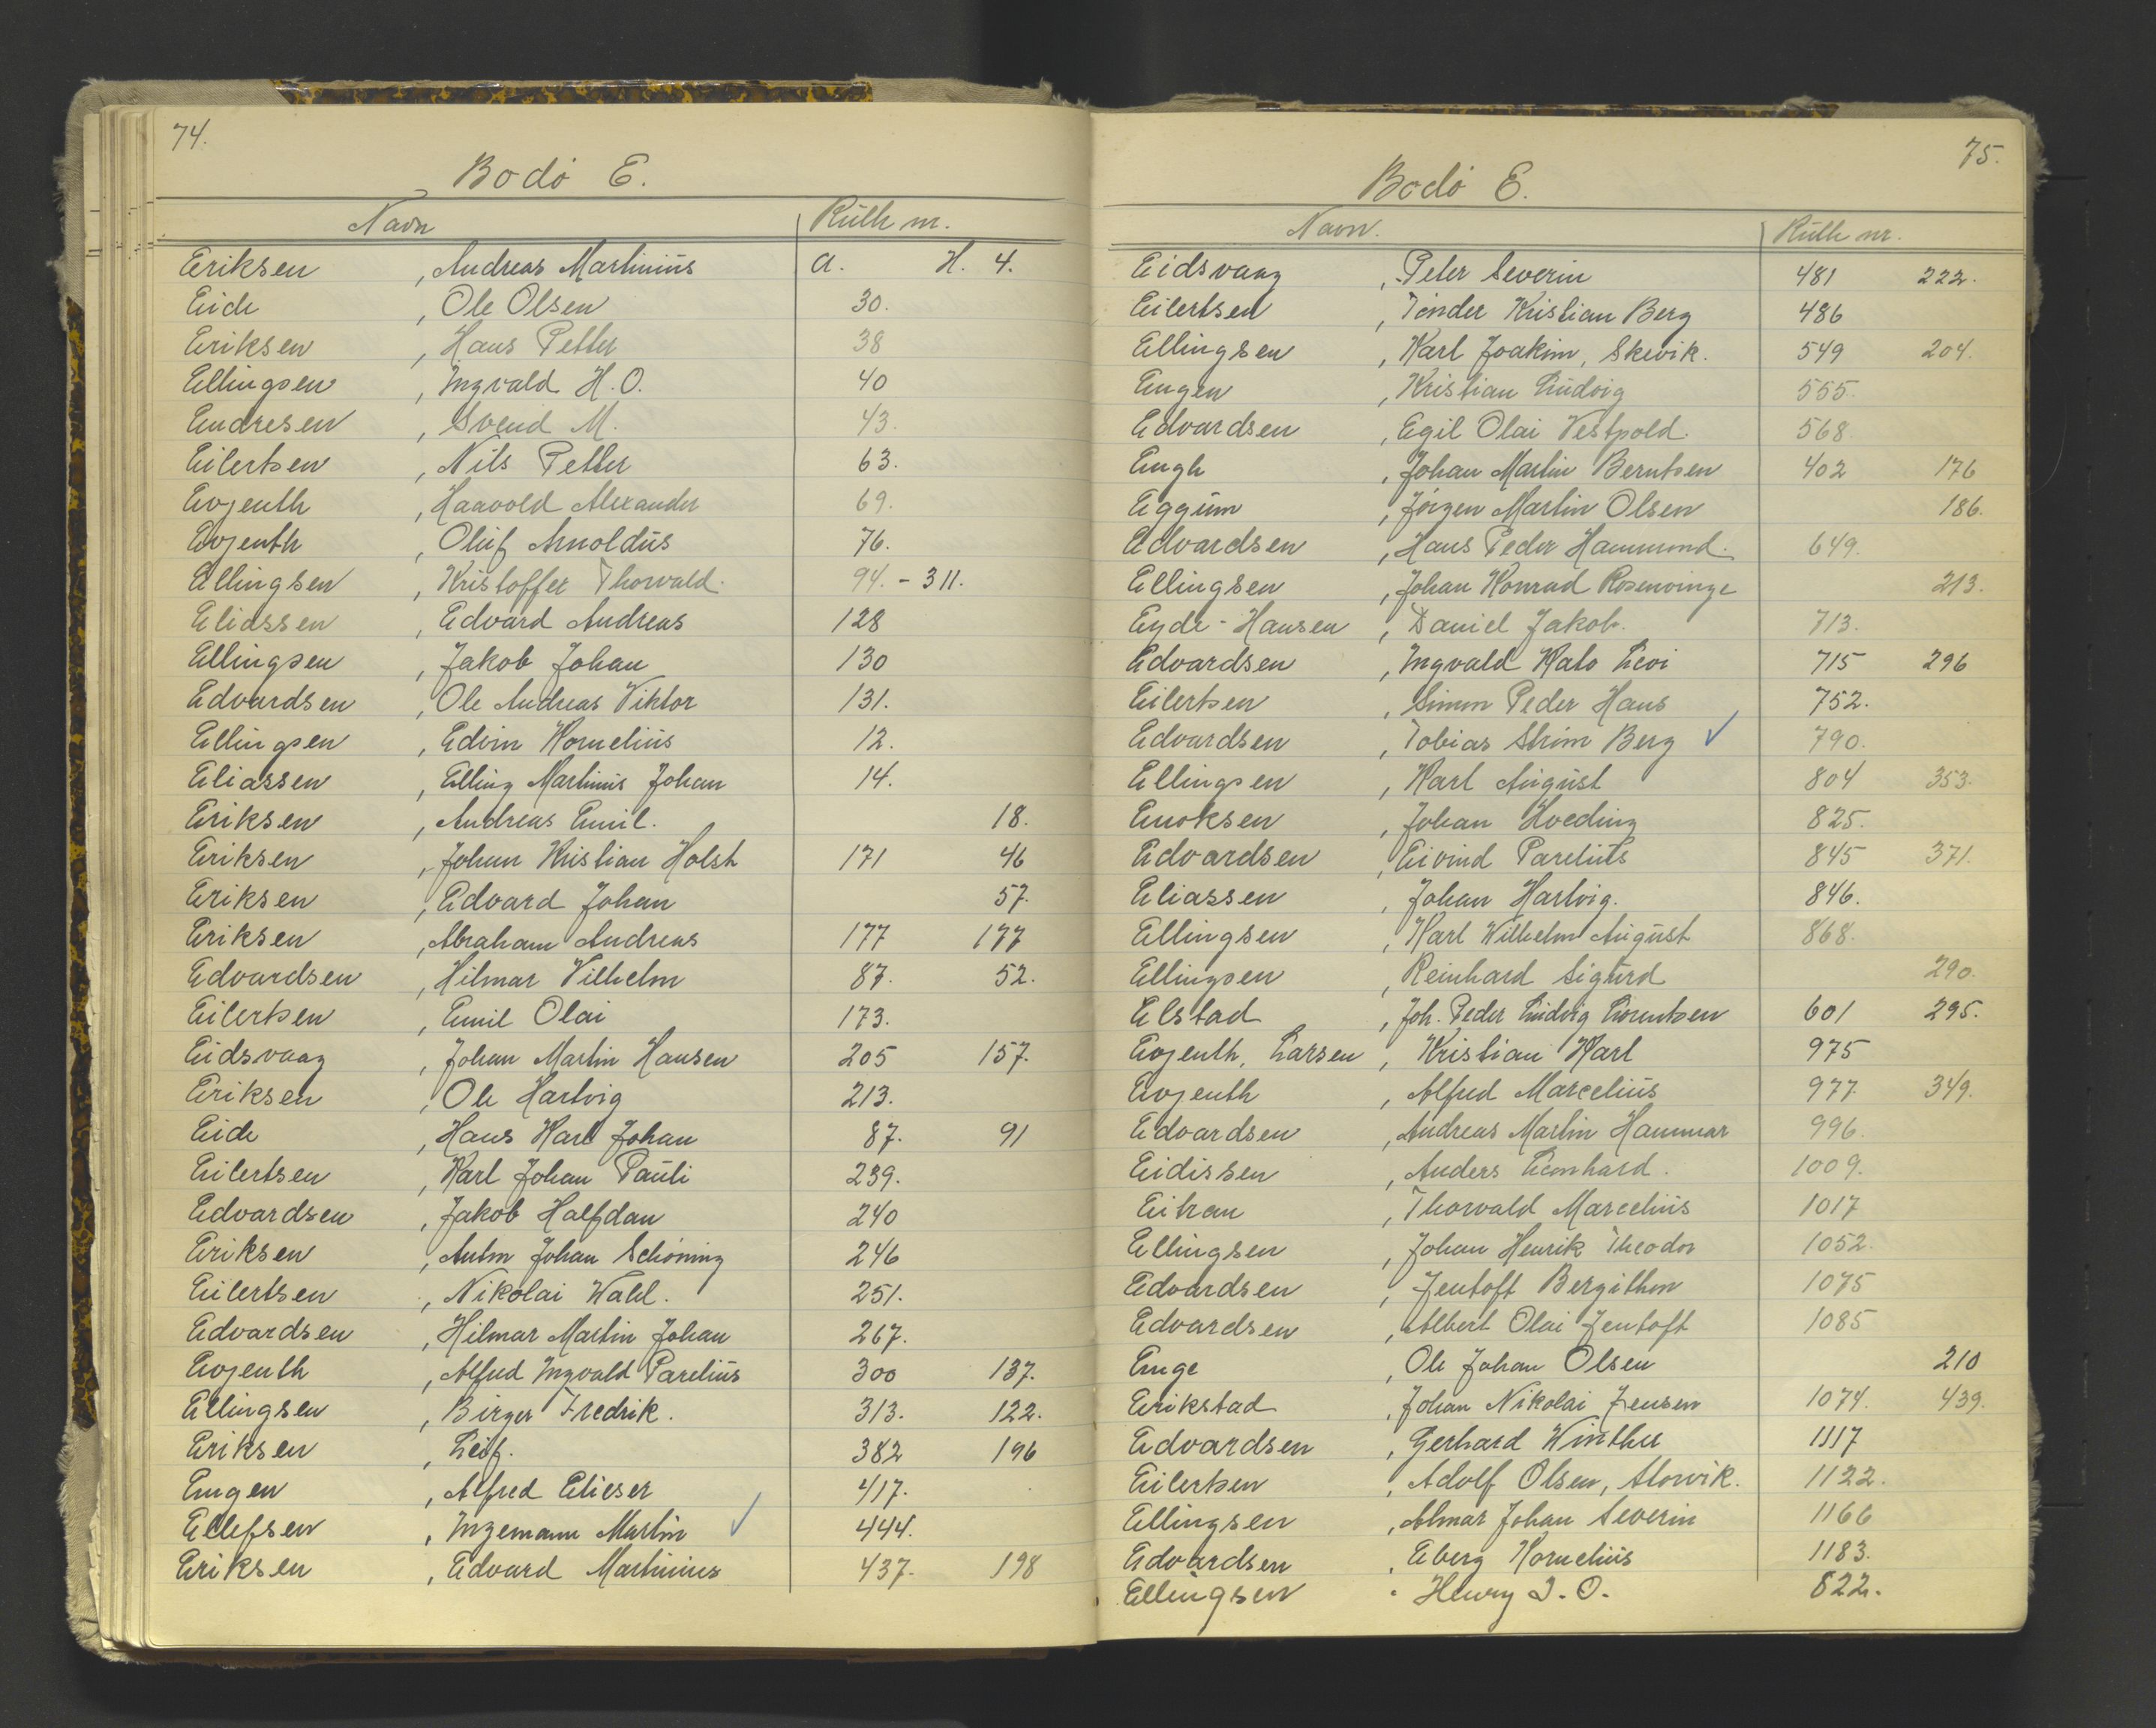 74.
Bodö E.
Navn Rulle nr.
Eriksen , Andreas Martinius a. H. 4.
Eide , Ole Olsen 30.
Eriksen , Hans Petter 38
Ellingsen , Ingvald H. O. 40
Endresen , Svend M. 43.
Eilertsen , Nils Petter 63.
Evjenth , Haavold Alexander 69.
Evjenth , Oluf Arnoldus 76.
Ellingsen , Kristoffer Thorvald. 94. - 311.
Eliassen , Edvard Andreas 128
Ellingsen , Jakob Johan 130
Edvardsen , Ole Andreas Viktor 131.
Ellingsen , Edvin Kornelius 12.
Eliassen , Elling Martinus Johan 14.
Eriksen , Andreas Emil. 18.
Eriksen , Johan Kristian Holst 171 46
Eriksen , Edvard Johan 57.
Eriksen , Abraham Andreas 177 177
Edvardsen , Hilmar Vilhelm 87. 52.
Eilertsen , Emil Olai 173.
Eidsvaag , Johan Martin Hansen 205 157.
Eriksen , Ole Hartvig 213.
Eide , Hans Karl Johan 87. 91
Eilertsen , Karl Johan Pauli 239.
Edvardsen , Jakob Halfdan 240
Eriksen , Anton Johan Schöning 246
Eilertsen , Nikolai Wahl. 251.
Edvardsen , Hilmar Martin Johan 267.
Evjenth , Alfred Ingvald Parelius 300 137.
Ellingsen , Birger Fredrik. 313. 122.
Eriksen , Leif. 382 196
Engen , Alfred Elieser 417.
Ellefsen , Ingemann Martin ✓ 444.
Eriksen , Edvard Martinius 437. 198
75.
Bodö E.
Navn. Rulle nr.
Eidsvaag , Peter Severin 481 222.
Eilertsen , Tönder Kristian Berg 486
Ellingsen , Karl Joakim, Skevik. 549 204.
Engen , Kristian Ludvig 555.
Edvardsen , Egil Olai Vestpold. 568.
Engh , Johan Martin Berntsen 402 176
Eggum , Jörgen Martin Olsen 186.
Edvardsen , Hans Peder Hammond. 649.
Ellingsen , Johan Konrad Rosenvinge 213.
Eyde-Hansen , Daniel Jakob. 713.
Edvardsen , Ingvald Kato Levi 715 296
Eilertsen , Simon Peder Hans 752.
Edvardsen , Tobias Strøm Berg ✓ 790.
Ellingsen , Karl August 804 353.
Enoksen , Johan Hveding 825.
Edvardsen , Eivind Parelius 845 371.
Eliassen , Johan Hartvig. 846.
Ellingsen , Karl Wilhelm August 868.
Ellingsen , Reinhard Sigurd 290.
Elstad , Joh. Peder Ludvig Lorentsen 601 295.
Evjenth, Larsen , Kristian Karl 975
Evjenth , Alfred Marcelius 977. 349.
Edvardsen , Andreas Martin Hammar 996.
Eidissen , Anders Leonhard. 1009.
Eitran , Thorvald Marcelius 1017
Ellingsen , Johan Henrik Theodor 1052.
Edvardsen , Jentoft Bergithon 1075
Edvardsen , Albert Olai Jentoft 1085
Enge , Ole Johan Olsen 210
Erikstad , Johan Nikolai Jensen 1074. 439.
Edvardsen , Gerhard Winther 1117
Eilertsen , Adolf Olsen, Storvik. 1122.
Ellingsen , Almar Johan Severin 1166
Edvardsen , Eberg Kornelius 1183.
Ellingsen , Henry I. O. 822.